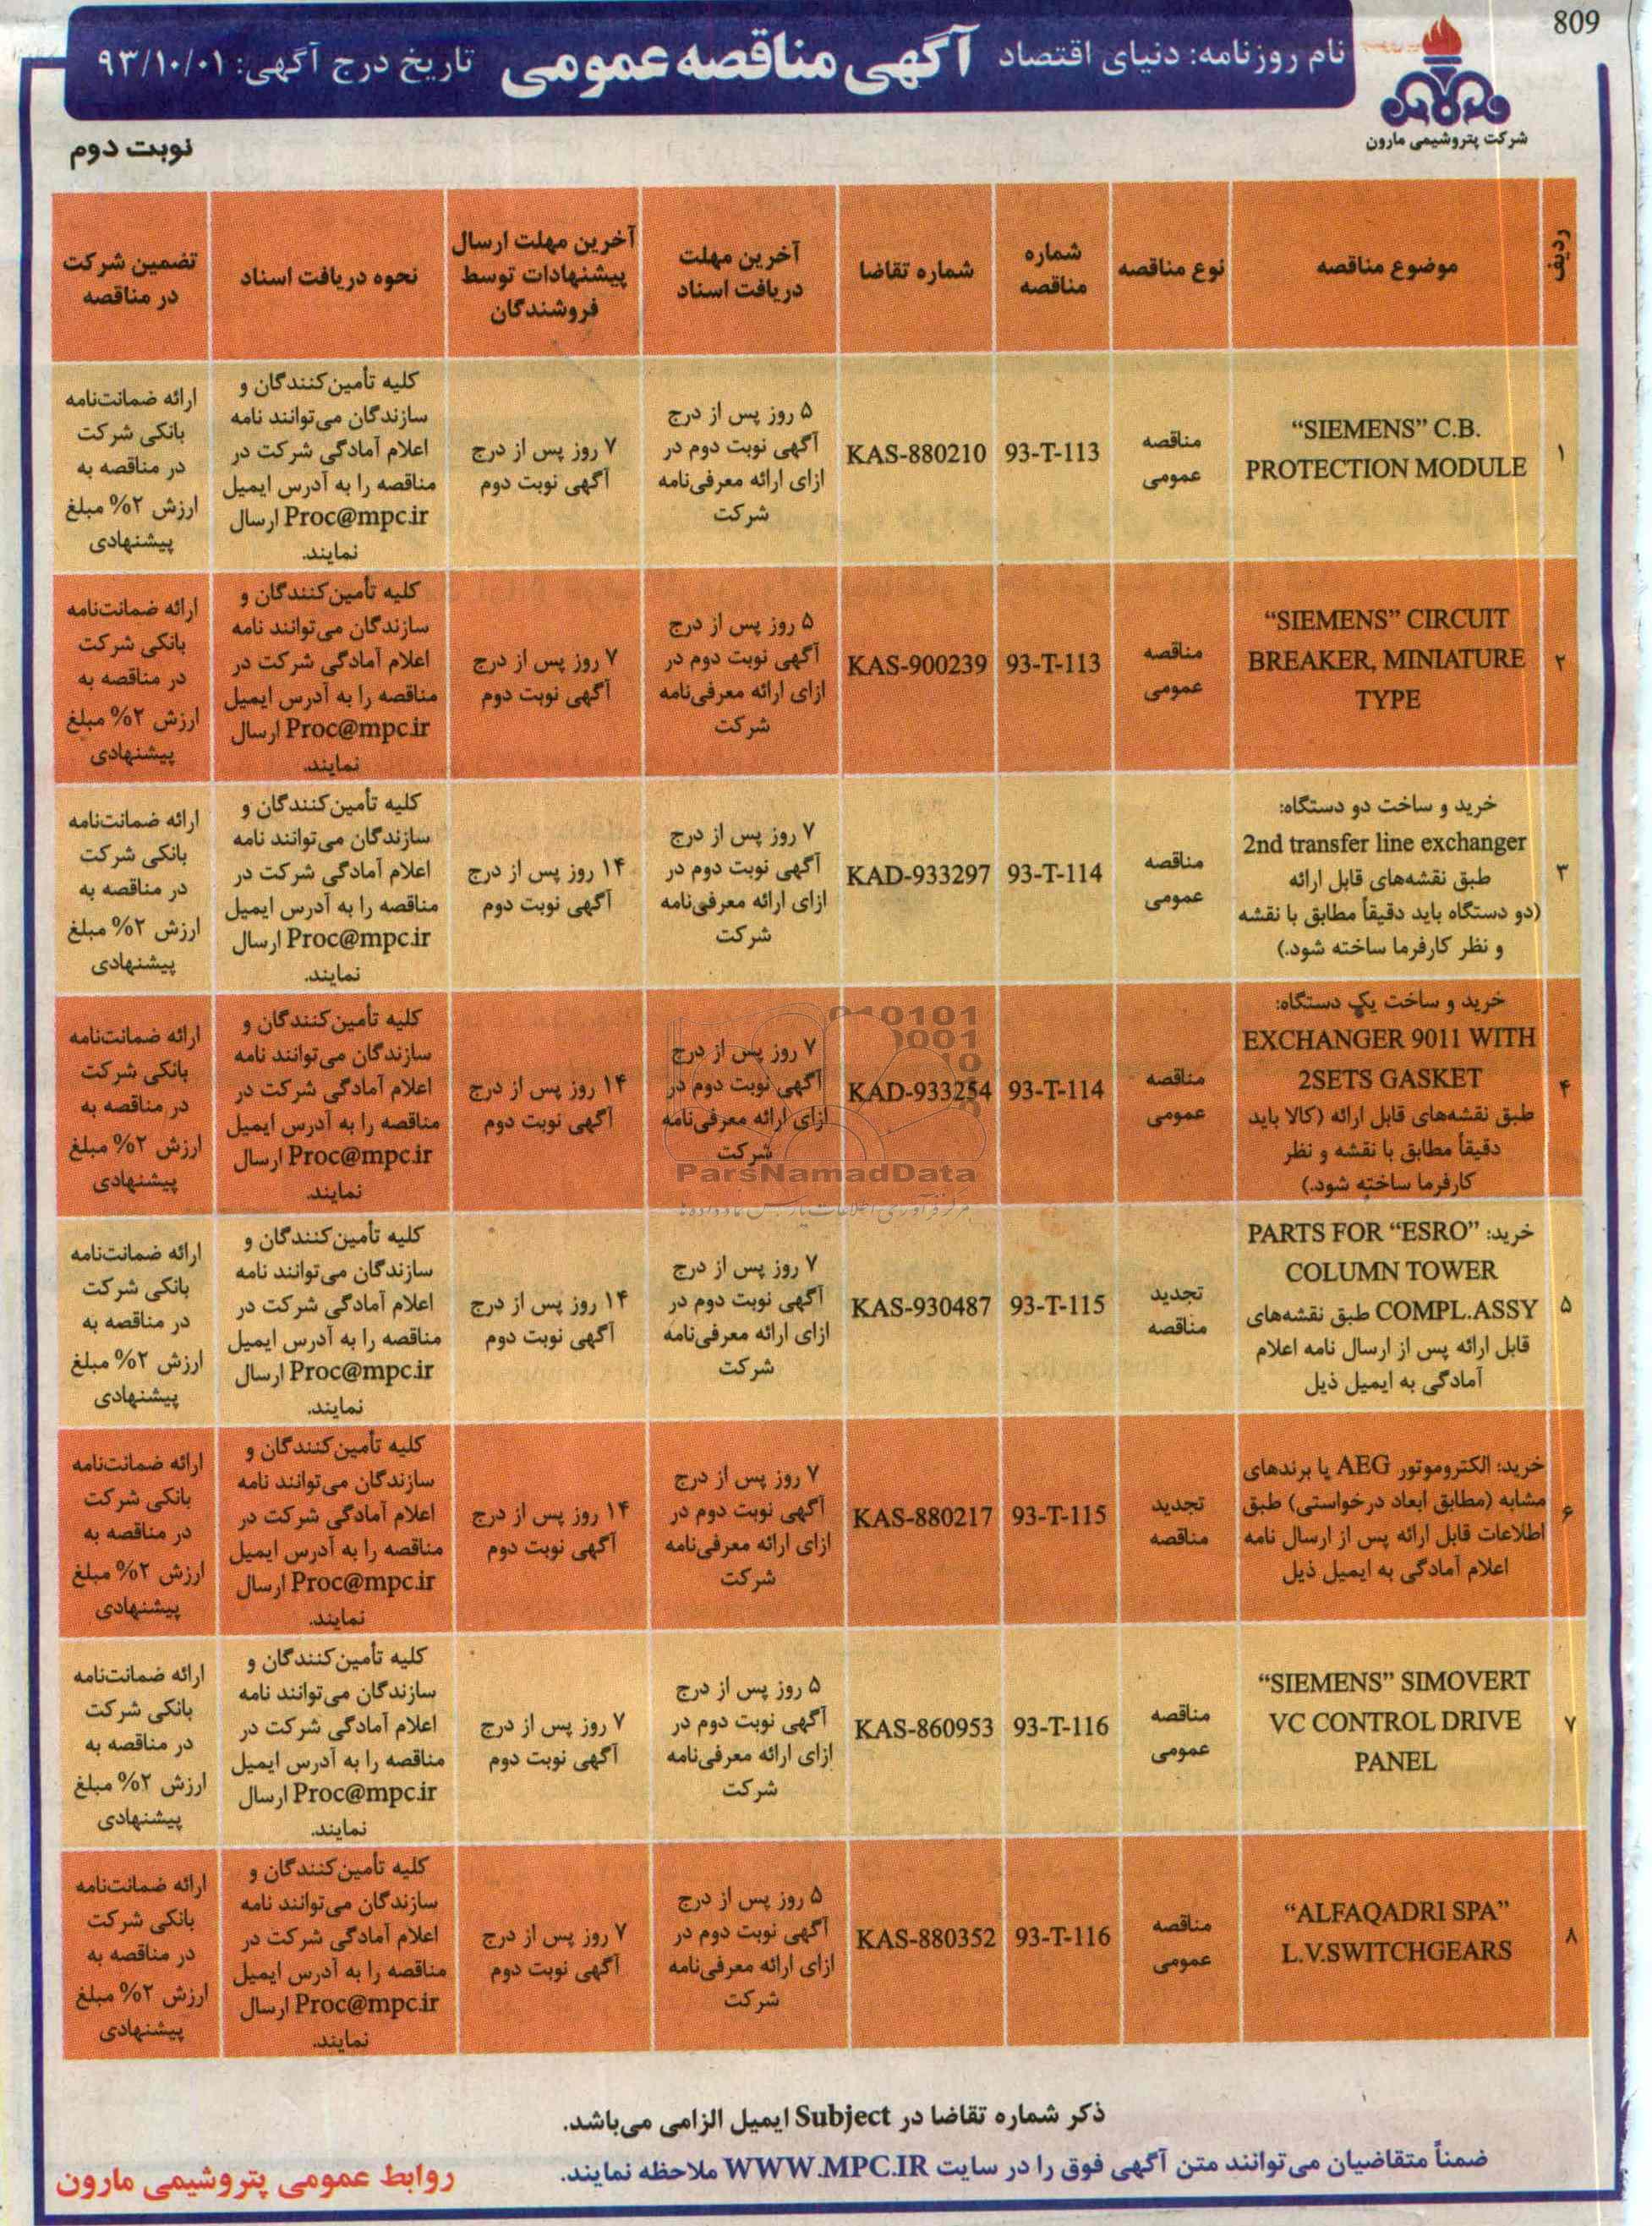 809
نام روزنامه: دنیای اقتصاد
آگهی مناقصه عمومی
تاریخ درج آگهی: ۹۳/۱۰/۰۱
شرکت پتروشیمی مارون
نوبت دوم
ردیف
موضوع مناقصه
نوع مناقصه
شماره
مناقصه
شماره تقاضا
آخرین مهلت
دریافت اسناد
آخرین مهلت ارسال
پیشنهادات توسط
فروشندگان
نحوه دریافت اسناد
تضمین شرکت
در مناقصه
۱
“SIEMENS” C.B.
PROTECTION MODULE
مناقصه
عمومی
93-T-113
KAS-880210
۵ روز پس از درج
آگهی نوبت دوم در
ازای ارائه معرفی‌نامه
شرکت
۷ روز پس از درج
آگهی نوبت دوم
کلیه تأمین‌کنندگان و
سازندگان می‌توانند نامه
اعلام آمادگی شرکت در
مناقصه را به آدرس ایمیل
Proc@mpc.ir ارسال
نمایند.
ارائه ضمانت‌نامه
بانکی شرکت
در مناقصه به
ارزش ۲% مبلغ
پیشنهادی
۲
“SIEMENS” CIRCUIT
BREAKER, MINIATURE
TYPE
مناقصه
عمومی
93-T-113
KAS-900239
۵ روز پس از درج
آگهی نوبت دوم در
ازای ارائه معرفی‌نامه
شرکت
۷ روز پس از درج
آگهی نوبت دوم
کلیه تأمین‌کنندگان و
سازندگان می‌توانند نامه
اعلام آمادگی شرکت در
مناقصه را به آدرس ایمیل
Proc@mpc.ir ارسال
نمایند.
ارائه ضمانت‌نامه
بانکی شرکت
در مناقصه به
ارزش ۲% مبلغ
پیشنهادی
۳
خرید و ساخت دو دستگاه:
2nd transfer line exchanger
طبق نقشه‌های قابل ارائه
(دو دستگاه باید دقیقاً مطابق با نقشه
و نظر کارفرما ساخته شود.)
مناقصه
عمومی
93-T-114
KAD-933297
۷ روز پس از درج
آگهی نوبت دوم در
ازای ارائه معرفی‌نامه
شرکت
۱۴ روز پس از درج
آگهی نوبت دوم
کلیه تأمین‌کنندگان و
سازندگان می‌توانند نامه
اعلام آمادگی شرکت در
مناقصه را به آدرس ایمیل
Proc@mpc.ir ارسال
نمایند.
ارائه ضمانت‌نامه
بانکی شرکت
در مناقصه به
ارزش ۲% مبلغ
پیشنهادی
۴
خرید و ساخت یک دستگاه:
EXCHANGER 9011 WITH
2SETS GASKET
طبق نقشه‌های قابل ارائه (کالا باید
دقیقاً مطابق با نقشه و نظر
کارفرما ساخته شود.)
مناقصه
عمومی
93-T-114
KAD-933254
۷ روز پس از درج
آگهی نوبت دوم در
ازای ارائه معرفی‌نامه
شرکت
۱۴ روز پس از درج
آگهی نوبت دوم
کلیه تأمین‌کنندگان و
سازندگان می‌توانند نامه
اعلام آمادگی شرکت در
مناقصه را به آدرس ایمیل
Proc@mpc.ir ارسال
نمایند.
ارائه ضمانت‌نامه
بانکی شرکت
در مناقصه به
ارزش ۲% مبلغ
پیشنهادی
ParsNamadData
۵
خرید: PARTS FOR “ESRO”
COLUMN TOWER
COMPL.ASSY طبق نقشه‌های
قابل ارائه پس از ارسال نامه اعلام
آمادگی به ایمیل ذیل
تجدید
مناقصه
93-T-115
KAS-930487
۷ روز پس از درج
آگهی نوبت دوم در
ازای ارائه معرفی‌نامه
شرکت
۱۴ روز پس از درج
آگهی نوبت دوم
کلیه تأمین‌کنندگان و
سازندگان می‌توانند نامه
اعلام آمادگی شرکت در
مناقصه را به آدرس ایمیل
Proc@mpc.ir ارسال
نمایند.
ارائه ضمانت‌نامه
بانکی شرکت
در مناقصه به
ارزش ۲% مبلغ
پیشنهادی
۶
خرید: الکتروموتور AEG یا برندهای
مشابه (مطابق ابعاد درخواستی) طبق
اطلاعات قابل ارائه پس از ارسال نامه
اعلام آمادگی به ایمیل ذیل
تجدید
مناقصه
93-T-115
KAS-880217
۷ روز پس از درج
آگهی نوبت دوم در
ازای ارائه معرفی‌نامه
شرکت
۱۴ روز پس از درج
آگهی نوبت دوم
کلیه تأمین‌کنندگان و
سازندگان می‌توانند نامه
اعلام آمادگی شرکت در
مناقصه را به آدرس ایمیل
Proc@mpc.ir ارسال
نمایند.
ارائه ضمانت‌نامه
بانکی شرکت
در مناقصه به
ارزش ۲% مبلغ
پیشنهادی
۷
“SIEMENS” SIMOVERT
VC CONTROL DRIVE
PANEL
مناقصه
عمومی
93-T-116
KAS-860953
۵ روز پس از درج
آگهی نوبت دوم در
ازای ارائه معرفی‌نامه
شرکت
۷ روز پس از درج
آگهی نوبت دوم
کلیه تأمین‌کنندگان و
سازندگان می‌توانند نامه
اعلام آمادگی شرکت در
مناقصه را به آدرس ایمیل
Proc@mpc.ir ارسال
نمایند.
ارائه ضمانت‌نامه
بانکی شرکت
در مناقصه به
ارزش ۲% مبلغ
پیشنهادی
۸
“ALFAQADRI SPA”
L.V.SWITCHGEARS
مناقصه
عمومی
93-T-116
KAS-880352
۵ روز پس از درج
آگهی نوبت دوم در
ازای ارائه معرفی‌نامه
شرکت
۷ روز پس از درج
آگهی نوبت دوم
کلیه تأمین‌کنندگان و
سازندگان می‌توانند نامه
اعلام آمادگی شرکت در
مناقصه را به آدرس ایمیل
Proc@mpc.ir ارسال
نمایند.
ارائه ضمانت‌نامه
بانکی شرکت
در مناقصه به
ارزش ۲% مبلغ
پیشنهادی
ذکر شماره تقاضا در Subject ایمیل الزامی می‌باشد.
ضمناً متقاضیان می‌توانند متن آگهی فوق را در سایت WWW.MPC.IR ملاحظه نمایند.
روابط عمومی پتروشیمی مارون